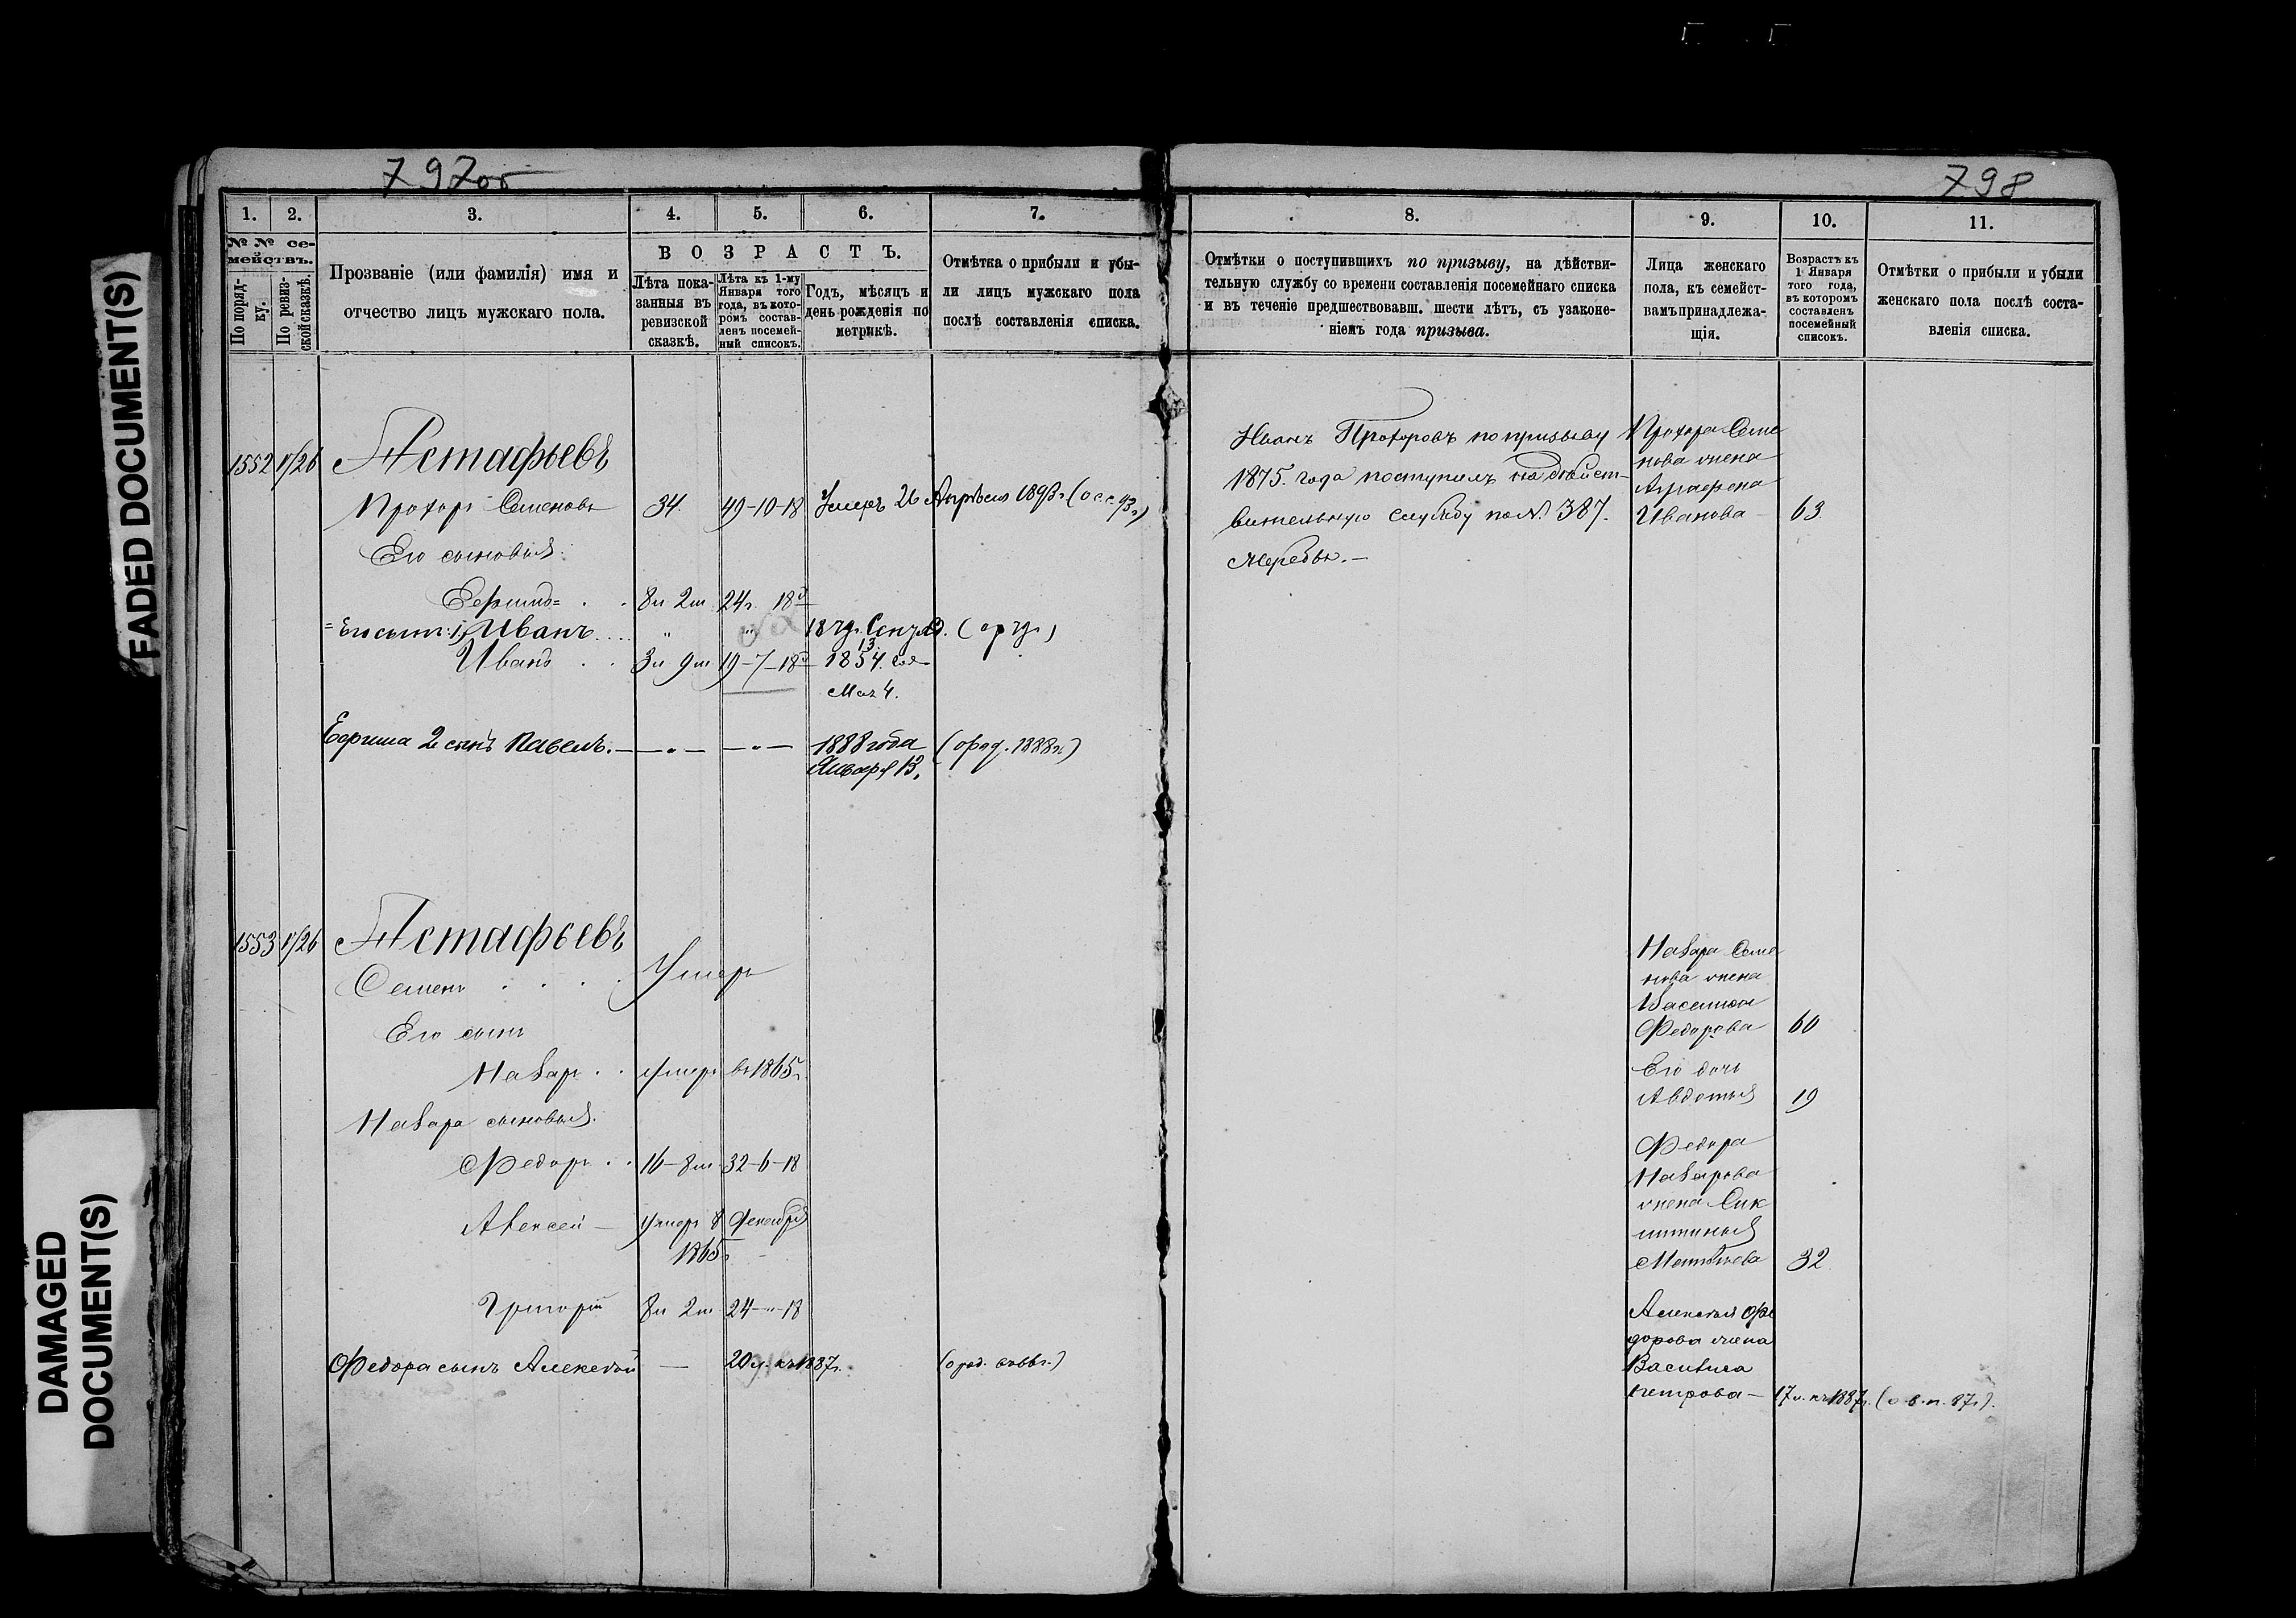 797об
798
1. 2. 3. 4. 5. 6. 7.
№ № се-
мействъ.
По поряд-
ку.
По ревиз-
ской сказкѣ.
Прозваніе (или фамилія) имя и
отчество лицъ мужскаго пола.
ВОЗРАСТЪ.
Лѣта пока-
занныя въ
ревизской
сказкѣ.
Лѣта къ 1-му
Января того
года, въ кото-
ромъ состав-
ленъ посемей-
ный списокъ.
Годъ, мѣсяцъ и
день рожденія по
метрикѣ.
Отмѣтка о прибыли и убы-
ли лицъ мужскаго пола
послѣ составленія списка.
8. 9. 10. 11.
Отмѣтки о поступившихъ по призыву, на дѣйстви-
тельную службу со времени составленія посемейнаго списка
и въ теченіе предшествовавш. шести лѣтъ, съ узаконе-
ніемъ года призыва.
Лица женскаго
пола, къ семейст-
вамъ принадлежа-
щія.
Возрастъ къ
1 Января
того года,
въ которомъ
составленъ
посемейный
списокъ.
Отмѣтки о прибыли и убыли
женскаго пола послѣ соста-
вленія списка.
1552 Астафьевъ
Прохоръ Семеновъ 34. 49-10-18 Умеръ 26 Апрѣля
Его сыновья:
8л 2м 24г. 18д
Его сынъ: 1, Иванъ " (ор
Иванъ 3л 9м 19-7-18д 1854. год
Мая 4.
2 сынъ Павелъ. 1888 года (ород. 1888г)
Января 13.
1553 Астафьевъ
Семенъ Умеръ
Его сынъ
Назаръ умеръ въ 1865г.
Назара сыновья:
Федоръ 16-8м 32-6-18
Алексей умеръ 8 Декабря
1865г.
Григорій 8л 2м 24-"-18
Федора сынъ Алексѣй — 20л. къ 1887г.
Иванъ Прохоровъ по призыву
1875. года поступилъ на дѣйст-
вительную службу по №. 387.
жеребья.—
Прохора Семе
нова жена
Аграфена
Иванова 63.
Назара Семе
нова жена
Федорова 60
Его дочь
Авдотья 19
Федора
Назарова
жена
32
Алексѣя Фе
дорова жена
Василиса
Петрова— 17л. къ 1887г. (о.в.п. 87г).
FADED DOCUMENT(S)
DAMAGED
DOCUMENT(S)